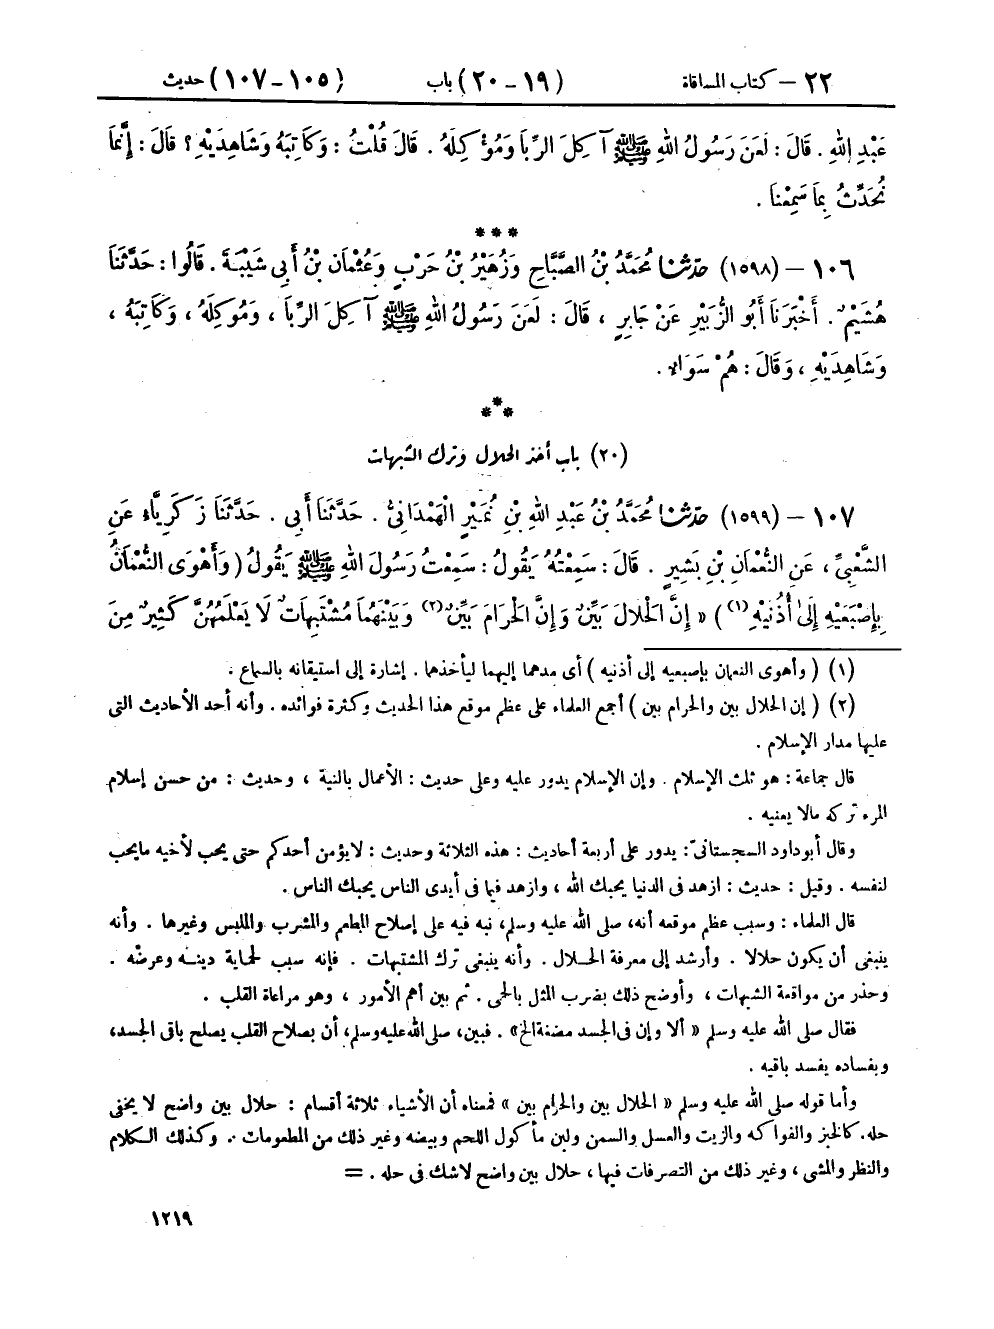 ٢٢ – كتاب المساقاة (١٩ – ٢٠) باب (١٠٥ – ١٠٧) حديث
عَبْدِ اللهِ . قَالَ : لَعَنَ رَسُولُ اللهِ ﷺ آ كِلَ الرِّبَا وَمُوْ كِلَهُ . قَالَ قُلْتُ : وَكَاتِبَهُ وَشَاهِدَيْهِ ؟ قَالَ : إِنَّمَا
نُحَدِّثُ بِمَا سَمِعْنَا .
***
١٠٦ – (١٥٩٨) حَدَّثَنَا مُحَمَّدُ بْنُ الصَّبَّاحِ وَزُهَيْرُ بْنُ حَرْبٍ وَعُثْمَانُ بْنُ أَبِي شَيْبَةَ . قَالُوا : حَدَّثَنَا
هُشَيْمٌ . أَخْبَرَنَا أَبُو الزُّبَيْرِ عَنْ جَابِرٍ ، قَالَ : لَعَنَ رَسُولُ اللهِ ﷺ آ كِلَ الرِّبَا ، وَمُوكِلَهُ ، وَكَاتِبَهُ ،
وَشَاهِدَيْهِ ، وَقَالَ : هُمْ سَوَاءٌ .
***
(٢٠) باب أخذ الحلال وترك الشبهات
١٠٧ – (١٥٩٩) حَدَّثَنَا مُحَمَّدُ بْنُ عَبْدِ اللهِ بْنِ نُمَيْرٍ الْهَمْدَانِيُّ . حَدَّثَنَا أَبِي . حَدَّثَنَا زَكَرِيَّاءُ عَنِ
الشَّعْبِيِّ ، عَنِ النُّعْمَانِ بْنِ بَشِيرٍ . قَالَ : سَمِعْتُهُ يَقُولُ : سَمِعْتُ رَسُولَ اللهِ ﷺ يَقُولُ ( وَأَهْوَى النُّعْمَانُ
بِإِصْبَعَيْهِ إِلَىٰ أُذُنَيْهِ(١) ) « إِنَّ الْحَلَالَ بَيِّنٌ وَإِنَّ الْحَرَامَ بَيِّنٌ(٢) وَبَيْنَهُمَا مُشْتَبِهَاتٌ لَا يَعْلَمُهُنَّ كَثِيرٌ مِنَ
(١) ( وأهوى النعمان بإصبعيه إلى أذنيه ) أى مدهما إليهما ليأخذهما . إشارة إلى استيقانه بالسماع .
(٢) ( إن الحلال بين والحرام بين ) أجمع العلماء على عظم موقع هذا الحديث وكثرة فوائده . وأنه أحد الأحاديث التى
عليها مدار الإسلام .
قال جماعة : هو ثلث الإسلام . وإن الإسلام يدور عليه وعلى حديث : الأعمال بالنية ، وحديث : من حسن إسلام
المرء تركه مالا يعنيه .
وقال أبو داود السجستانىّ : يدور على أربعة أحاديث : هذه الثلاثة وحديث : لايؤمن أحدكم حتى يحب لأخيه مايحب
لنفسه . وقيل : حديث : ازهد فى الدنيا يحبك الله ، وازهد فيما فى أيدى الناس يحبك الناس .
قال العلماء : وسبب عظم موقعه أنه، صلى الله عليه وسلم، نبه فيه على إصلاح المطعم والمشرب والملبس وغيرها . وأنه
ينبغى أن يكون حلالا . وأرشد إلى معرفة الحلال . وأنه ينبغى ترك المشتبهات . فإنه سبب لحماية دينه وعرضه .
وحذر من مواقعة الشبهات ، وأوضح ذلك بضرب المثل بالحمى . ثم بين أهم الأمور ، وهو مراعاة القلب .
فقال صلى الله عليه وسلم « ألا وإن فى الجسد مضغة الخ » . فبين، صلى الله عليه وسلم، أن بصلاح القلب يصلح باقى الجسد،
وبفساده يفسد باقيه .
وأما قوله صلى الله عليه وسلم « الحلال بين والحرام بين » فمعناه أن الأشياء ثلاثة أقسام : حلال بين واضح لا يخفى
حله. كالخبز والفواكه والزيت والعسل والسمن ولبن مأكول اللحم وبيضه وغير ذلك من المطعومات . وكذلك الكلام
والنظر والمشى ، وغير ذلك من التصرفات فيها ، حلال بين واضح لاشك فى حله . =
١٢١٩